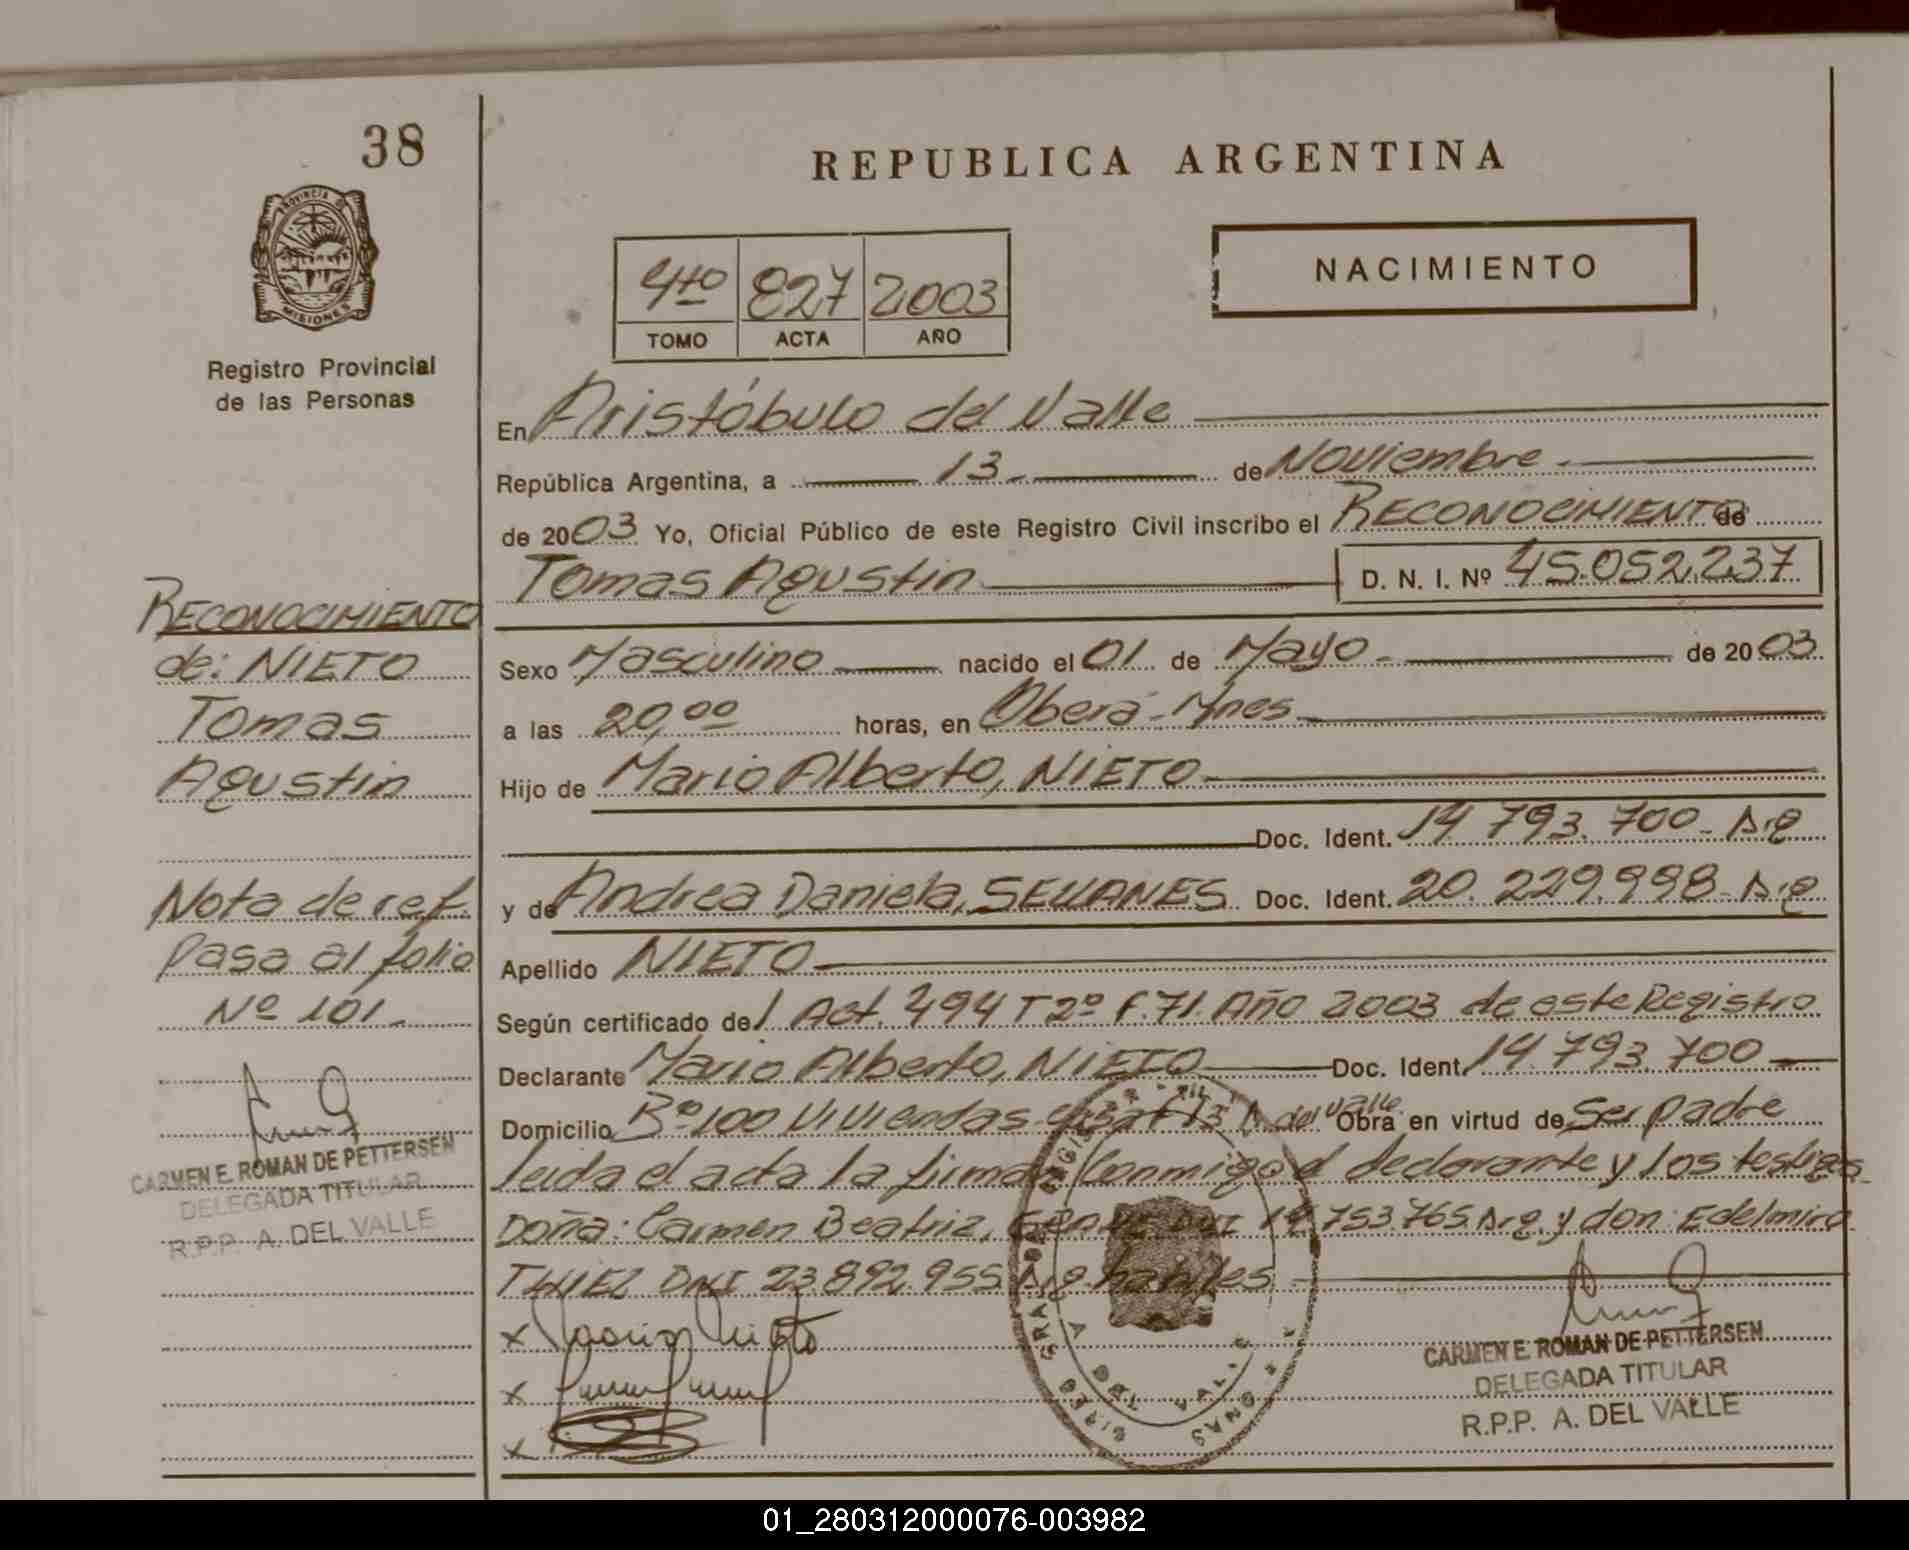 38
PROVINCIA DE
MISIONES
Registro Provincial
de las Personas
RECONOCIMIENTO
de: NIETO
Tomas
Agustin
Nota de ref.
Pasa al folio
Nº 101.
CARMEN E. ROMAN DE PETTERSEN
DELEGADA TITULAR
R.P.P. A. DEL VALLE
REPUBLICA ARGENTINA
4to 827 2003
TOMO ACTA AÑO
NACIMIENTO
En Aristóbulo del Valle
República Argentina, a 13. de Noviembre.
de 2003 Yo, Oficial Público de este Registro Civil inscribo el RECONOCIMIENTO de
Tomas Agustin D. N. I. Nº 45.052.237
Sexo Masculino nacido el 01 de Mayo. de 2003.
a las 20,00 horas, en Oberá-Mnes
Hijo de Mario Alberto, NIETO
Doc. Ident. 14.793.700- Arg
y de Andrea Daniela, Doc. Ident. 20.229.998- Arg
Apellido NIETO
Según certificado del Act. 494 T 2º F.71. Año 2003 de este Registro
Declarante Mario Alberto, NIETO Doc. Ident. 14.793.700
Domicilio Bº 100 Viviendas casa 13 A. del Valle Obra en virtud de Ser padre
leida el acta la firman Conmigo el declarante y los testigos
Doña: Carmen Beatriz, DNI 14.753.765 Arg. y don: Edelmiro
DNI 23.892.955 Arg. habiles.
x Mario Nieto
x
x
CARMEN E. ROMAN DE PETTERSEN
DELEGADA TITULAR
R.P.P. A. DEL VALLE
A. DEL VALLE
01_280312000076-003982